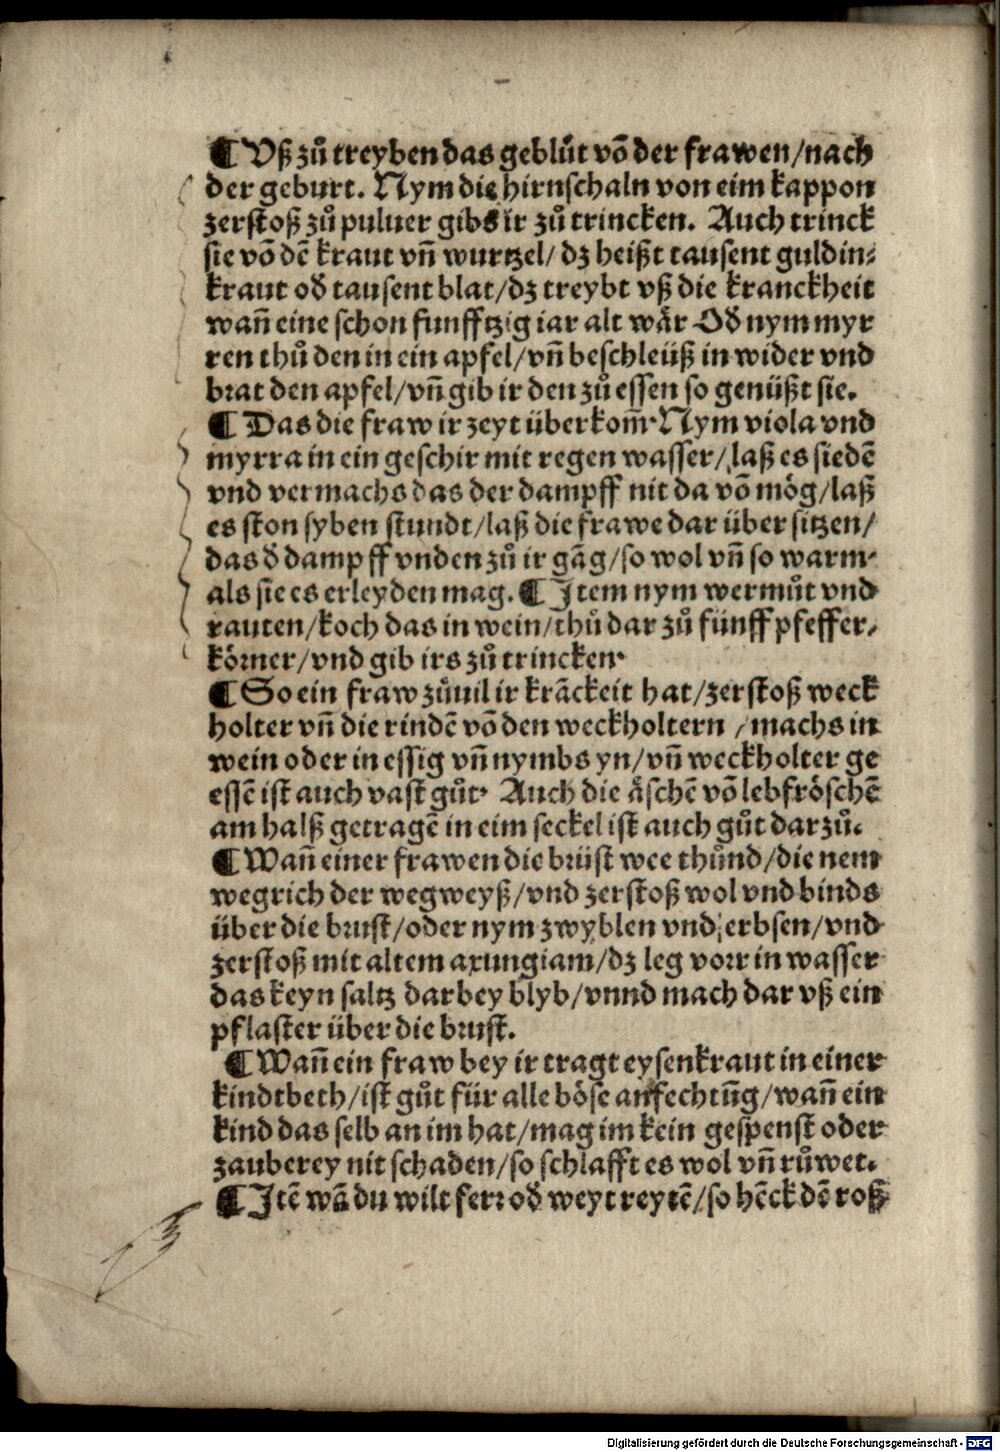 ¶ Vß zů treyben das geblůt võ der frawen/nach
der geburt. Nym die hirnschaln von eim kappon
zerstoß zů puluer gibs ir zů trincken. Auch trinck
sie võ dẽ kraut vñ wurtzel/ dz heißt tausent guldin⸗
kraut oď tausent blat/dz treybt vß die kranckheit
wañ eine schon funfftzig iar alt wår Oď nym myr
ren thů den in ein apfel/vñ beschleüß in wider vnd
brat den apfel/vñ gib ir den zů essen so genüßt sie.
¶ Das die fraw ir zeyt überkom̃· Nym viola vnd
myrra in ein geschir mit regen wasser/laß es siedẽ
vnd vermachs das der dampff nit da võ mög/laß
es ston syben stundt/laß die frawe dar über sitzen/
das ď dampff vnden zů ir gãg/so wol vñ so warm·
als sie es erleyden mag. ¶ Item nym wermůt vnd
rauten/koch das in wein/thů dar zů fünff pfeffer⸗
körner/vnd gib irs zů trincken·
¶ So ein fraw zůuil ir krãckeit hat/zerstoß weck
holter vñ die rindẽ võ den weckholtern /machs in
wein oder in essig vñ nymbs yn/vñ weckholter ge
essẽ ist auch vast gůt· Auch die åschẽ võ lebfröschẽ
am halß getragẽ in eim seckel ist auch gůt dar zů.
¶ Wañ einer frawen die brüst wee thůnd/die nem
wegrich der wegweyß/vnd zerstoß wol vnd binds
über die brust/oder nym zwyblen vnd erbsen/vnd
zerstoß mit altem axungiam/dz leg vorr in wasser
das keyn saltz darbey blyb/vnnd mach dar vß ein
pflaster über die brust.
¶ Wañ ein fraw bey ir tragt eysenkraut in einer
kindtbeth/ist gůt für alle böse anfechtũg/wañ ein
kind das selb an im hat/mag im kein gespenst oder
zauberey nit schaden/so schlafft es wol vñ růwet.
¶ Itẽ wã du wilt ferr oď weyt reytẽ/so hẽck dẽ roß
Digitalisierung gefördert durch die Deutsche Forschungsgemeinschaft - DFG